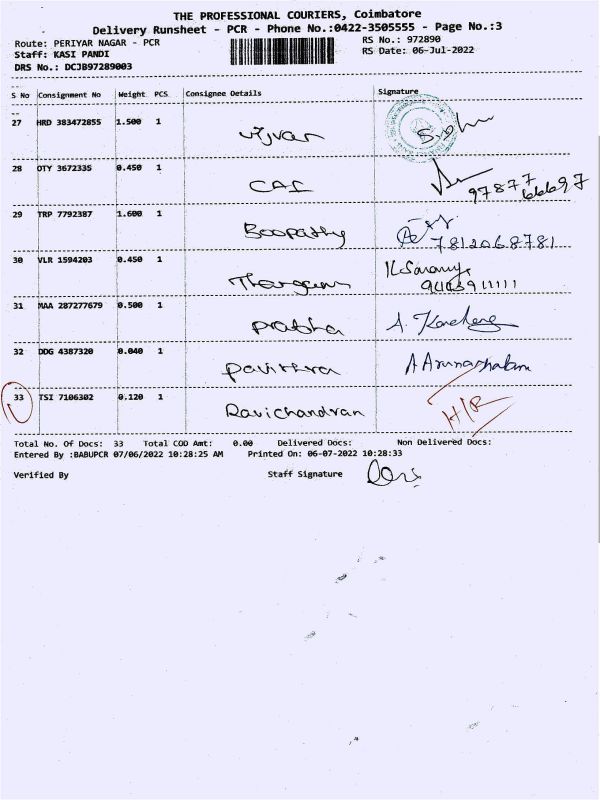 THE PROFESSIONAL COURIERS, Coimbatore
Delivery Runsheet - PCR - Phone No.:0422-3505555 - Page No.:3
Route: PERIYAR NAGAR - PCR RS No.: 972890
Staff: KASI PANDI RS Date: 06-Jul-2022
DRS No.: DCJB97289003
S No Consignment No Weight PCS Consignee Details Signature
27 HRD 383472855 1.500 1 Vijvan
28 OTY 3672335 0.450 1 CAI 97877 66697
29 TRP 7792387 1.600 1 Boopathy 7812068781
30 VLR 1594203 0.450 1
31 MAA 287277679 0.500 1 Prabha
32 DDG 4387320 0.040 1 Pavithra A Arunachalam
33 TSI 7106302 0.120 1 Ravichandran H/R
Total No. Of Docs: 33 Total COD Amt: 0.00 Delivered Docs: Non Delivered Docs:
Entered By :BABUPCR 07/06/2022 10:28:25 AM Printed On: 06-07-2022 10:28:33
Verified By Staff Signature